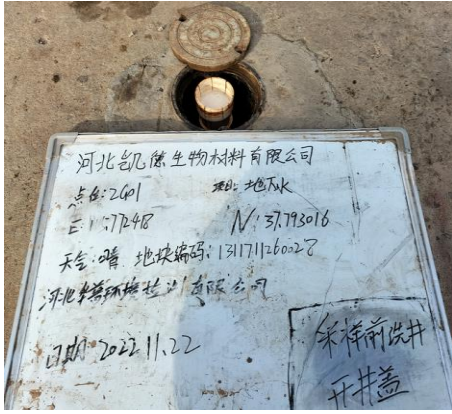 河北凯德生物材料有限公司
点位:2G01 项目:地下水
E: :77248 N:37.793016
天气:晴 地块编码:1311711260028
河北 环境检测有限公司
日期:2022.11.22
采样前洗井
开井盖